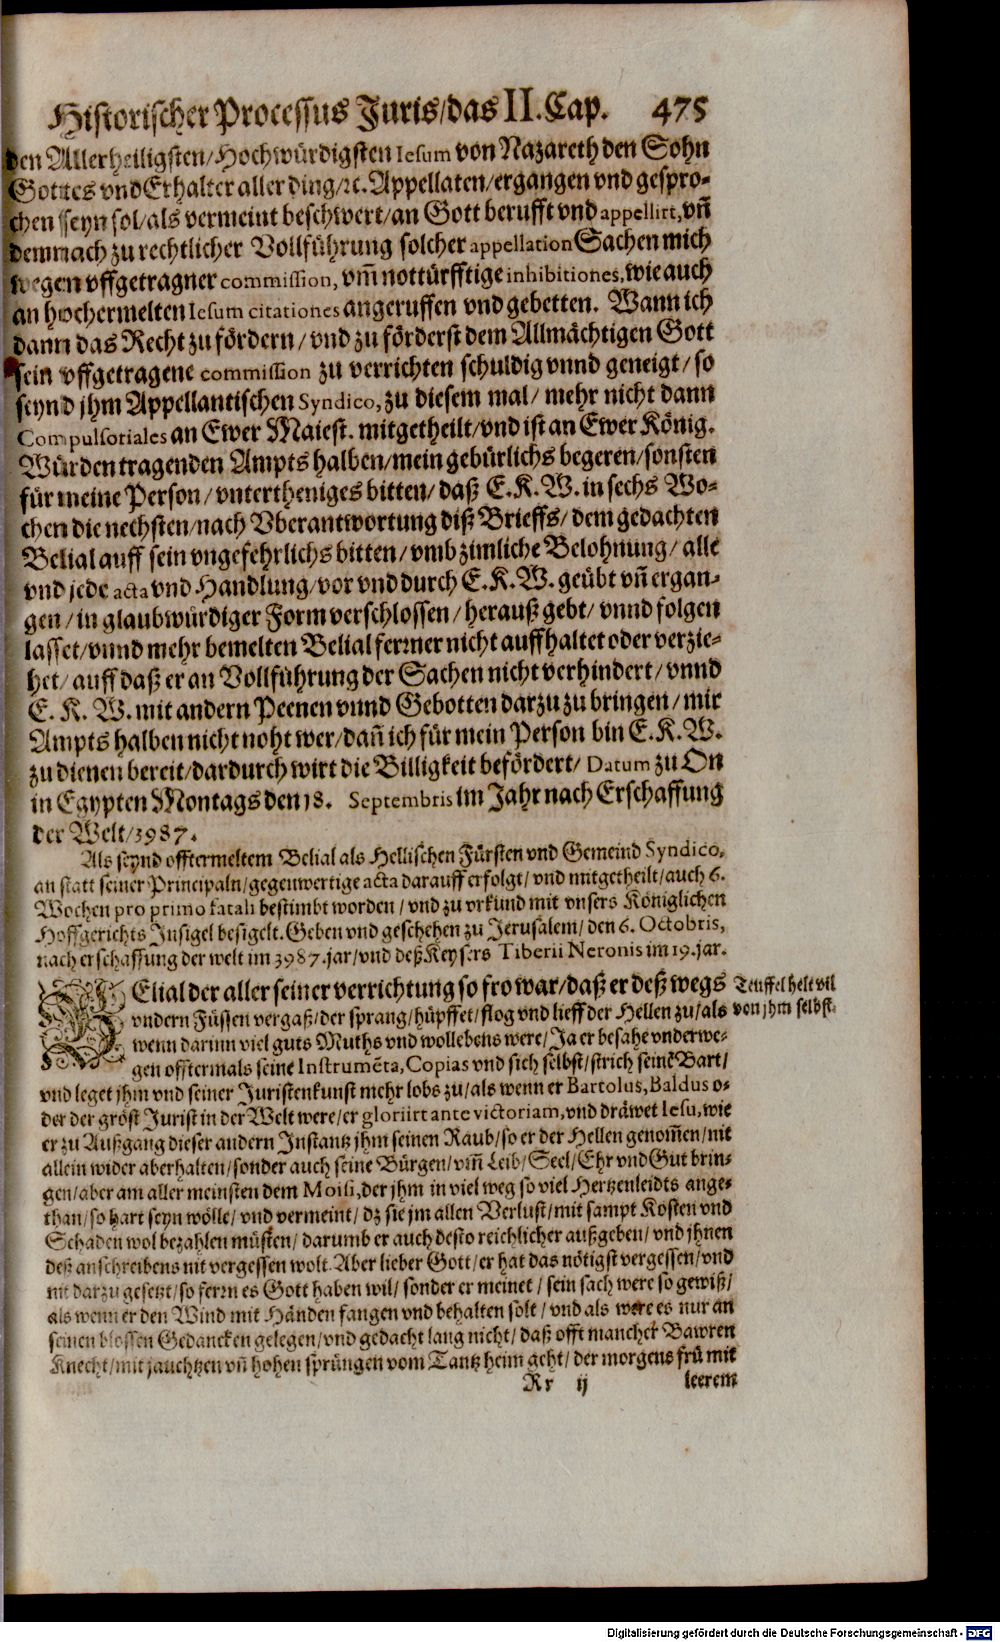 Historischer Processus Juris/das II. Cap. 475
den Allerheiligsten/Hochwürdigsten Iesum von Nazareth den Sohn
Gottes vnd Erhalter aller ding/ꝛc. Appellaten/ergangen vnd gespro-
chen seyn sol/als vermeint beschwert/an Gott berufft vnd appellirt, vñ
demnach zu rechtlicher Vollführung solcher appellation Sachen mich
wegen vffgetragner commission, vm̃ nottürfftige inhibitiones, wie auch
an hochermelten Iesum citationes angeruffen vnd gebetten. Wann ich
dann das Recht zu fördern/vnd zu förderst dem Allmächtigen Gott
sein vffgetragene commission zu verrichten schuldig vnnd geneigt/so
seynd jhm Appellantischen Syndico, zu diesem mal/mehr nicht dann
Compulsoriales an Ewer Maiest. mitgetheilt/vnd ist an Ewer König.
Würden tragenden Ampts halben/mein gebürlichs begeren/sonsten
für meine Person/vntertheniges bitten/daß E. K. W. in sechs Wo-
chen die nechsten/nach Vberantwortung diß Brieffs/dem gedachten
Belial auff sein vngefehrlichs bitten/vmb zimliche Belohnung/alle
vnd jede acta vnd Handlung/vor vnd durch E. K. W. geübt vñ ergan-
gen/in glaubwürdiger Form verschlossen/herauß gebt/vnnd folgen
lasset/vnnd mehr bemelten Belial ferrner nicht auffhaltet oder verzie-
het/auff daß er an Vollführung der Sachen nicht verhindert/vnnd
E. K. W. mit andern Peenen vnnd Gebotten darzu zu bringen/mir
Ampts halben nicht noht wer/dañ ich für mein Person bin E. K. W.
zu dienen bereit/dardurch wirt die Billigkeit befördert/Datum zu On
in Egypten Montags den 18. Septembris im Jahr nach Erschaffung
der Welt/3987.
Als seynd offtermeltem Belial als Hellischen Fürsten vnd Gemeind Syndico,
an statt seiner Principaln/gegenwertige acta darauff erfolgt/vnd mitgetheilt/auch 6.
Wochen pro primo fatali bestimbt worden/vnd zu vrkund mit vnsers Königlichen
Hoffgerichts Insigel besigelt. Geben vnd geschehen zu Jerusalem/den 6. Octobris,
nach erschaffung der welt im 3987. jar/vnd deß Keysers Tiberii Neronis im 19. jar.
BElial der aller seiner verrichtung so fro war/daß er deß wegs
vndern Füssen vergaß/der sprang/hüpffet/flog vnd lieff der Hellen zu/als
wenn darinn viel guts Muths vnd wollebens were/Ja er besahe vnderwe-
gen offtermals seine Instrumẽta, Copias vnd sich selbst/strich seinẽ Bart/
vnd leget jhm vnd seiner Juristenkunst mehr lobs zu/als wenn er Bartolus, Baldus o-
der der gröst Jurist in der Welt were/er gloriirt ante victoriam, vnd dräwet Iesu, wie
er zu Außgang dieser andern Instantz jhm seinen Raub/so er der Hellen genom̃en/nit
allein wider aberhalten/sonder auch seine Bürgen/vm̃ Leib/Seel/Ehr vnd Gut brin-
gen/aber am aller meinsten dem Moisi, der jhm in viel weg so viel Hertzenleidts ange-
than/so hart seyn wölle/vnd vermeint/dz sie jm allen Verlust/mit sampt Kosten vnd
Schaden wol bezahlen müsten/darumb er auch desto reichlicher außgeben/vnd jhnen
deß anschreibens nit vergessen wolt. Aber lieber Gott/er hat das nötigst vergessen/vnd
nit darzu gesetzt/so ferrn es Gott haben wil/sonder er meinet/sein sach were so gewiß/
als wenn er den Wind mit Händen fangen vnd behalten solt/vnd als were es nur an
seinen blossen Gedancken gelegen/vnd gedacht lang nicht/daß offt mancher Bawren
Knecht/mit jauchtzen vñ hohen sprüngen vom Tantz heim geht/der morgens frü mit
Teuffel helt vil
von jhm selbst.
Rr ij leerem
Digitalisierung gefördert durch die Deutsche Forschungsgemeinschaft - DFG